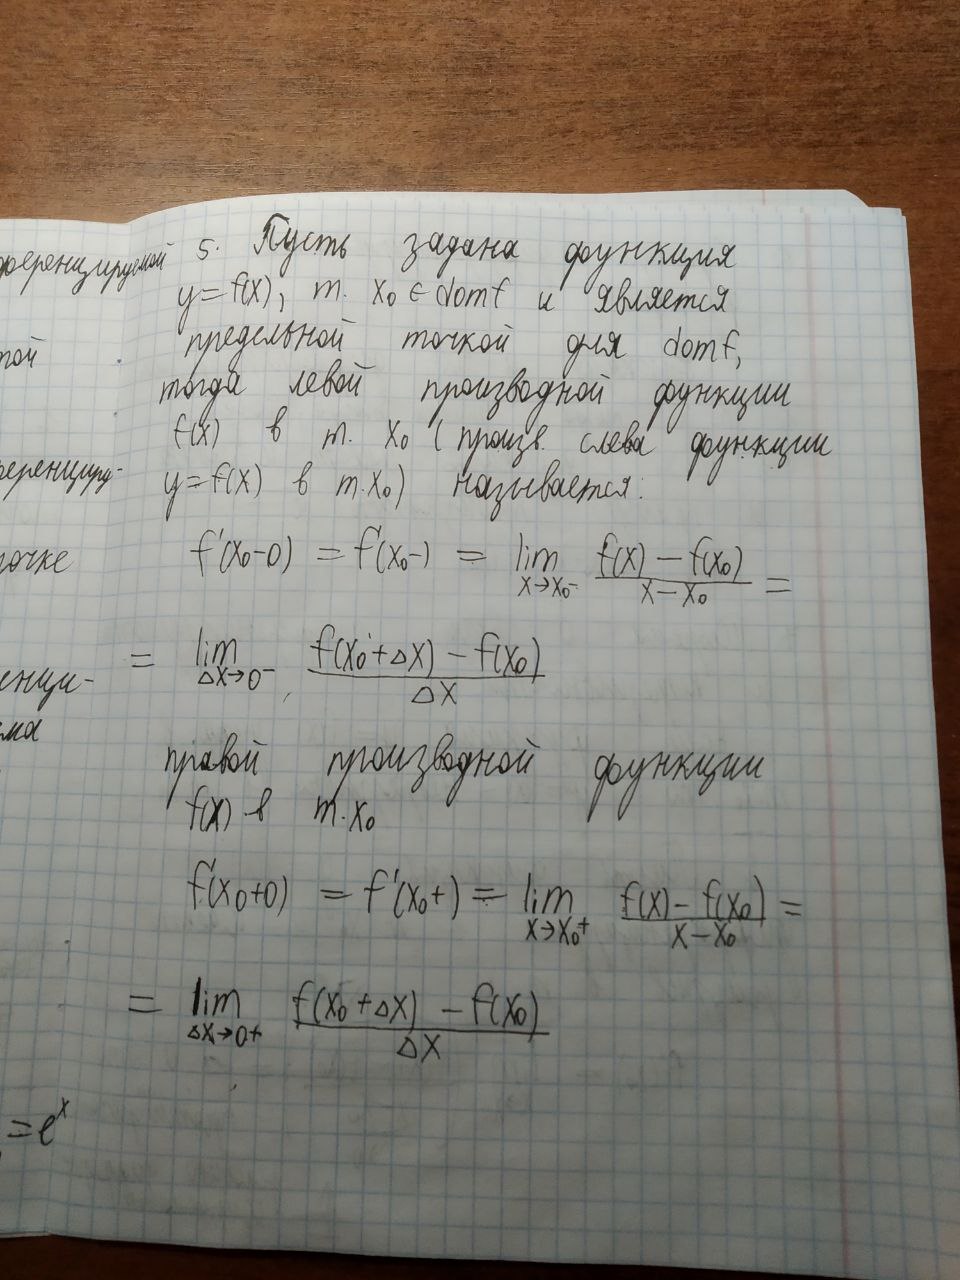 ференцируемой
той
ференциру-
точке
енци-
ма
= e^x
5. Пусть задана функция
y=f(x), т. x₀ ∈ domf и является
предельной точкой для domf,
тогда левой производной функции
f(x) в т. x₀ (произв. слева функции
y=f(x) в т.x₀) называется:
f'(x₀-0) = f'(x₀-) = lim x→x₀- (f(x) - f(x₀))/(x-x₀) =
= lim Δx→0- (f(x₀+Δx) - f(x₀))/Δx
правой производной функции
f(x) в т.x₀
f'(x₀+0) = f'(x₀+) = lim x→x₀+ (f(x) - f(x₀))/(x-x₀) =
= lim Δx→0+ (f(x₀+Δx) - f(x₀))/Δx